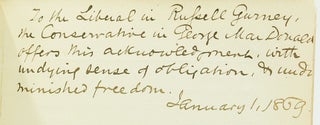 To the Liberal in Russell Gurney,
the Conservative in George MacDonald
offers this acknowledgment, with
undying sense of obligation, & undi-
minished freedom.
January 1, 1869.